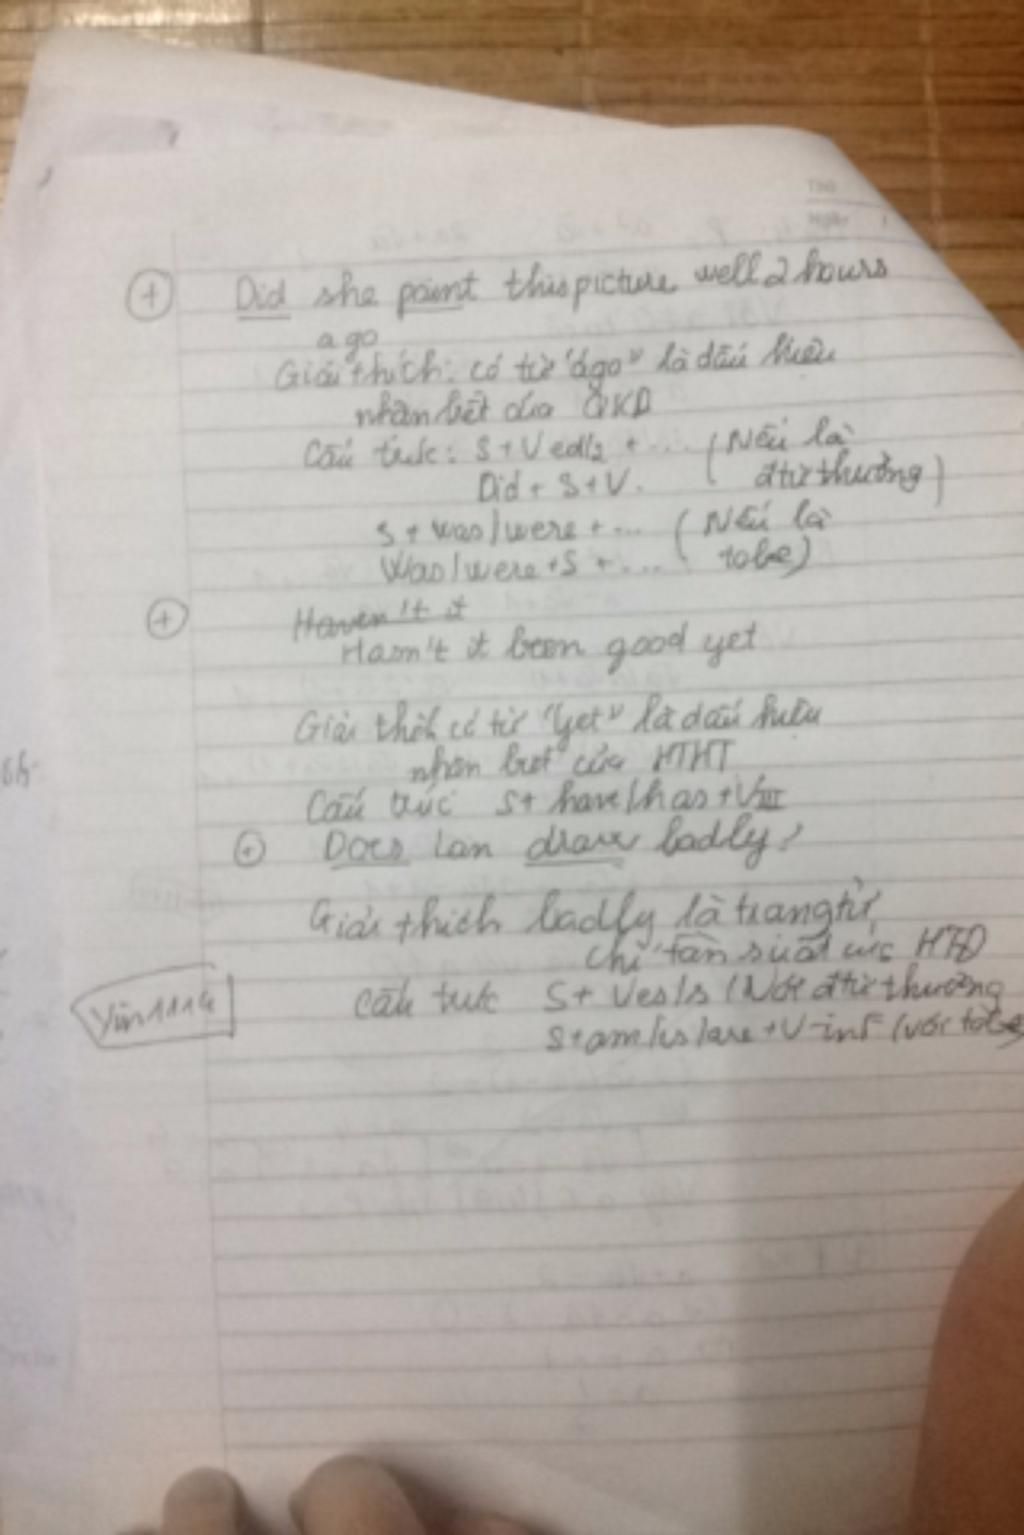 Did she paint this picture well 2 hours
ago
Giải thích: có từ "ago" là dấu hiệu
nhận biết của QKD
Cấu trúc: S + V ed/2 + ... (Nếu là
Did + S + V. đtừ thường)
S + was/were + ... (Nếu là
Was/were + S + .... tobe)
Haven't it
Hasn't it been good yet
Giải thích có từ "yet" là dấu hiệu
nhận biết của HTHT
Cấu trúc S + have/has + VIII
Does Lan draw badly?
Giải thích badly là trạng từ
chỉ tần suất HTĐ
Cấu trúc S + Ves/s (Với đtừ thường
S + am/is/are + V-inf (với tobe